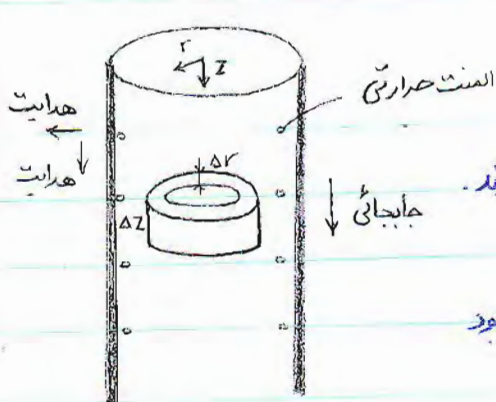 r
z
المنت حرارتی
هدایت
هدایت
Δr
ΔZ
جابجائی
ند.
ود